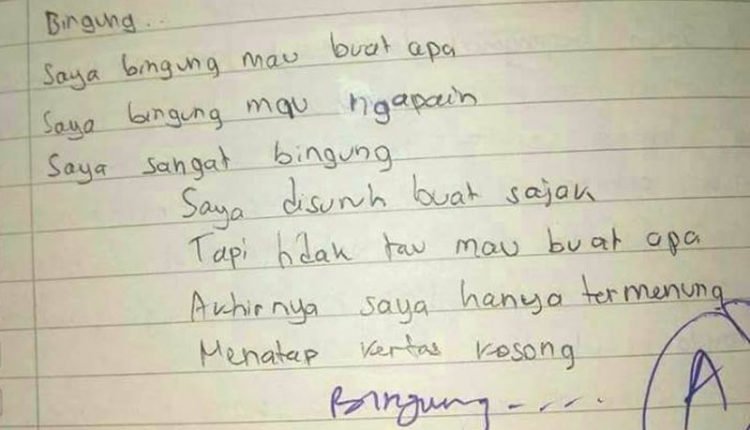 Bingung...
Saya bingung mau buat apa
Saya bingung mau ngapain
Saya sangat bingung
Saya disuruh buat sajak
Tapi tidak tau mau buat apa
Akhirnya saya hanya termenung
Menatap kertas kosong
Bingung - . . .
A